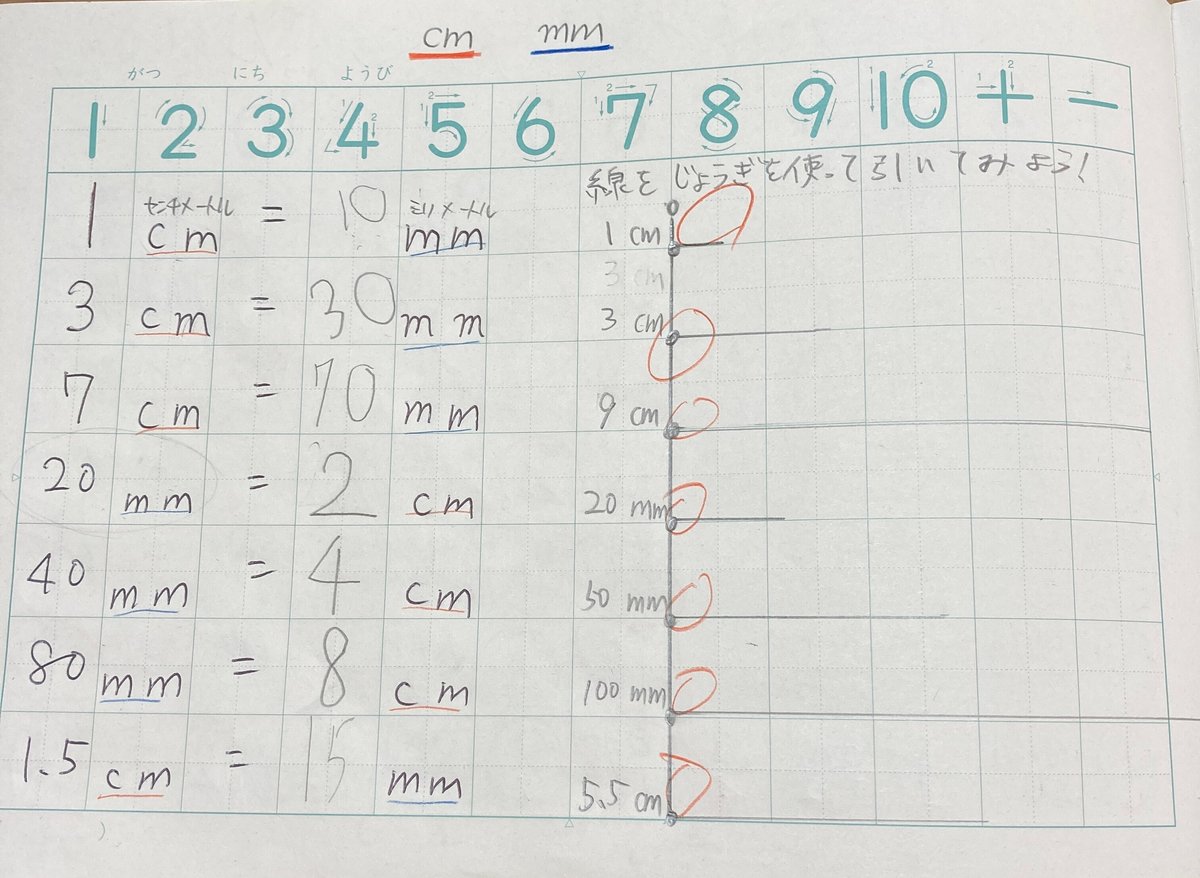 cm mm
がつ にち ようび
1 2 3 4 5 6 7 8 9 10 + −
線をじょうぎを使って引いてみよう!
センチメートル ミリメートル
1 cm = 10 mm
3 cm = 30 mm
7 cm = 70 mm
20 mm = 2 cm
40 mm = 4 cm
80 mm = 8 cm
1.5 cm = 15 mm
1 cm
3 cm
3 cm
9 cm
20 mm
50 mm
100 mm
5.5 cm